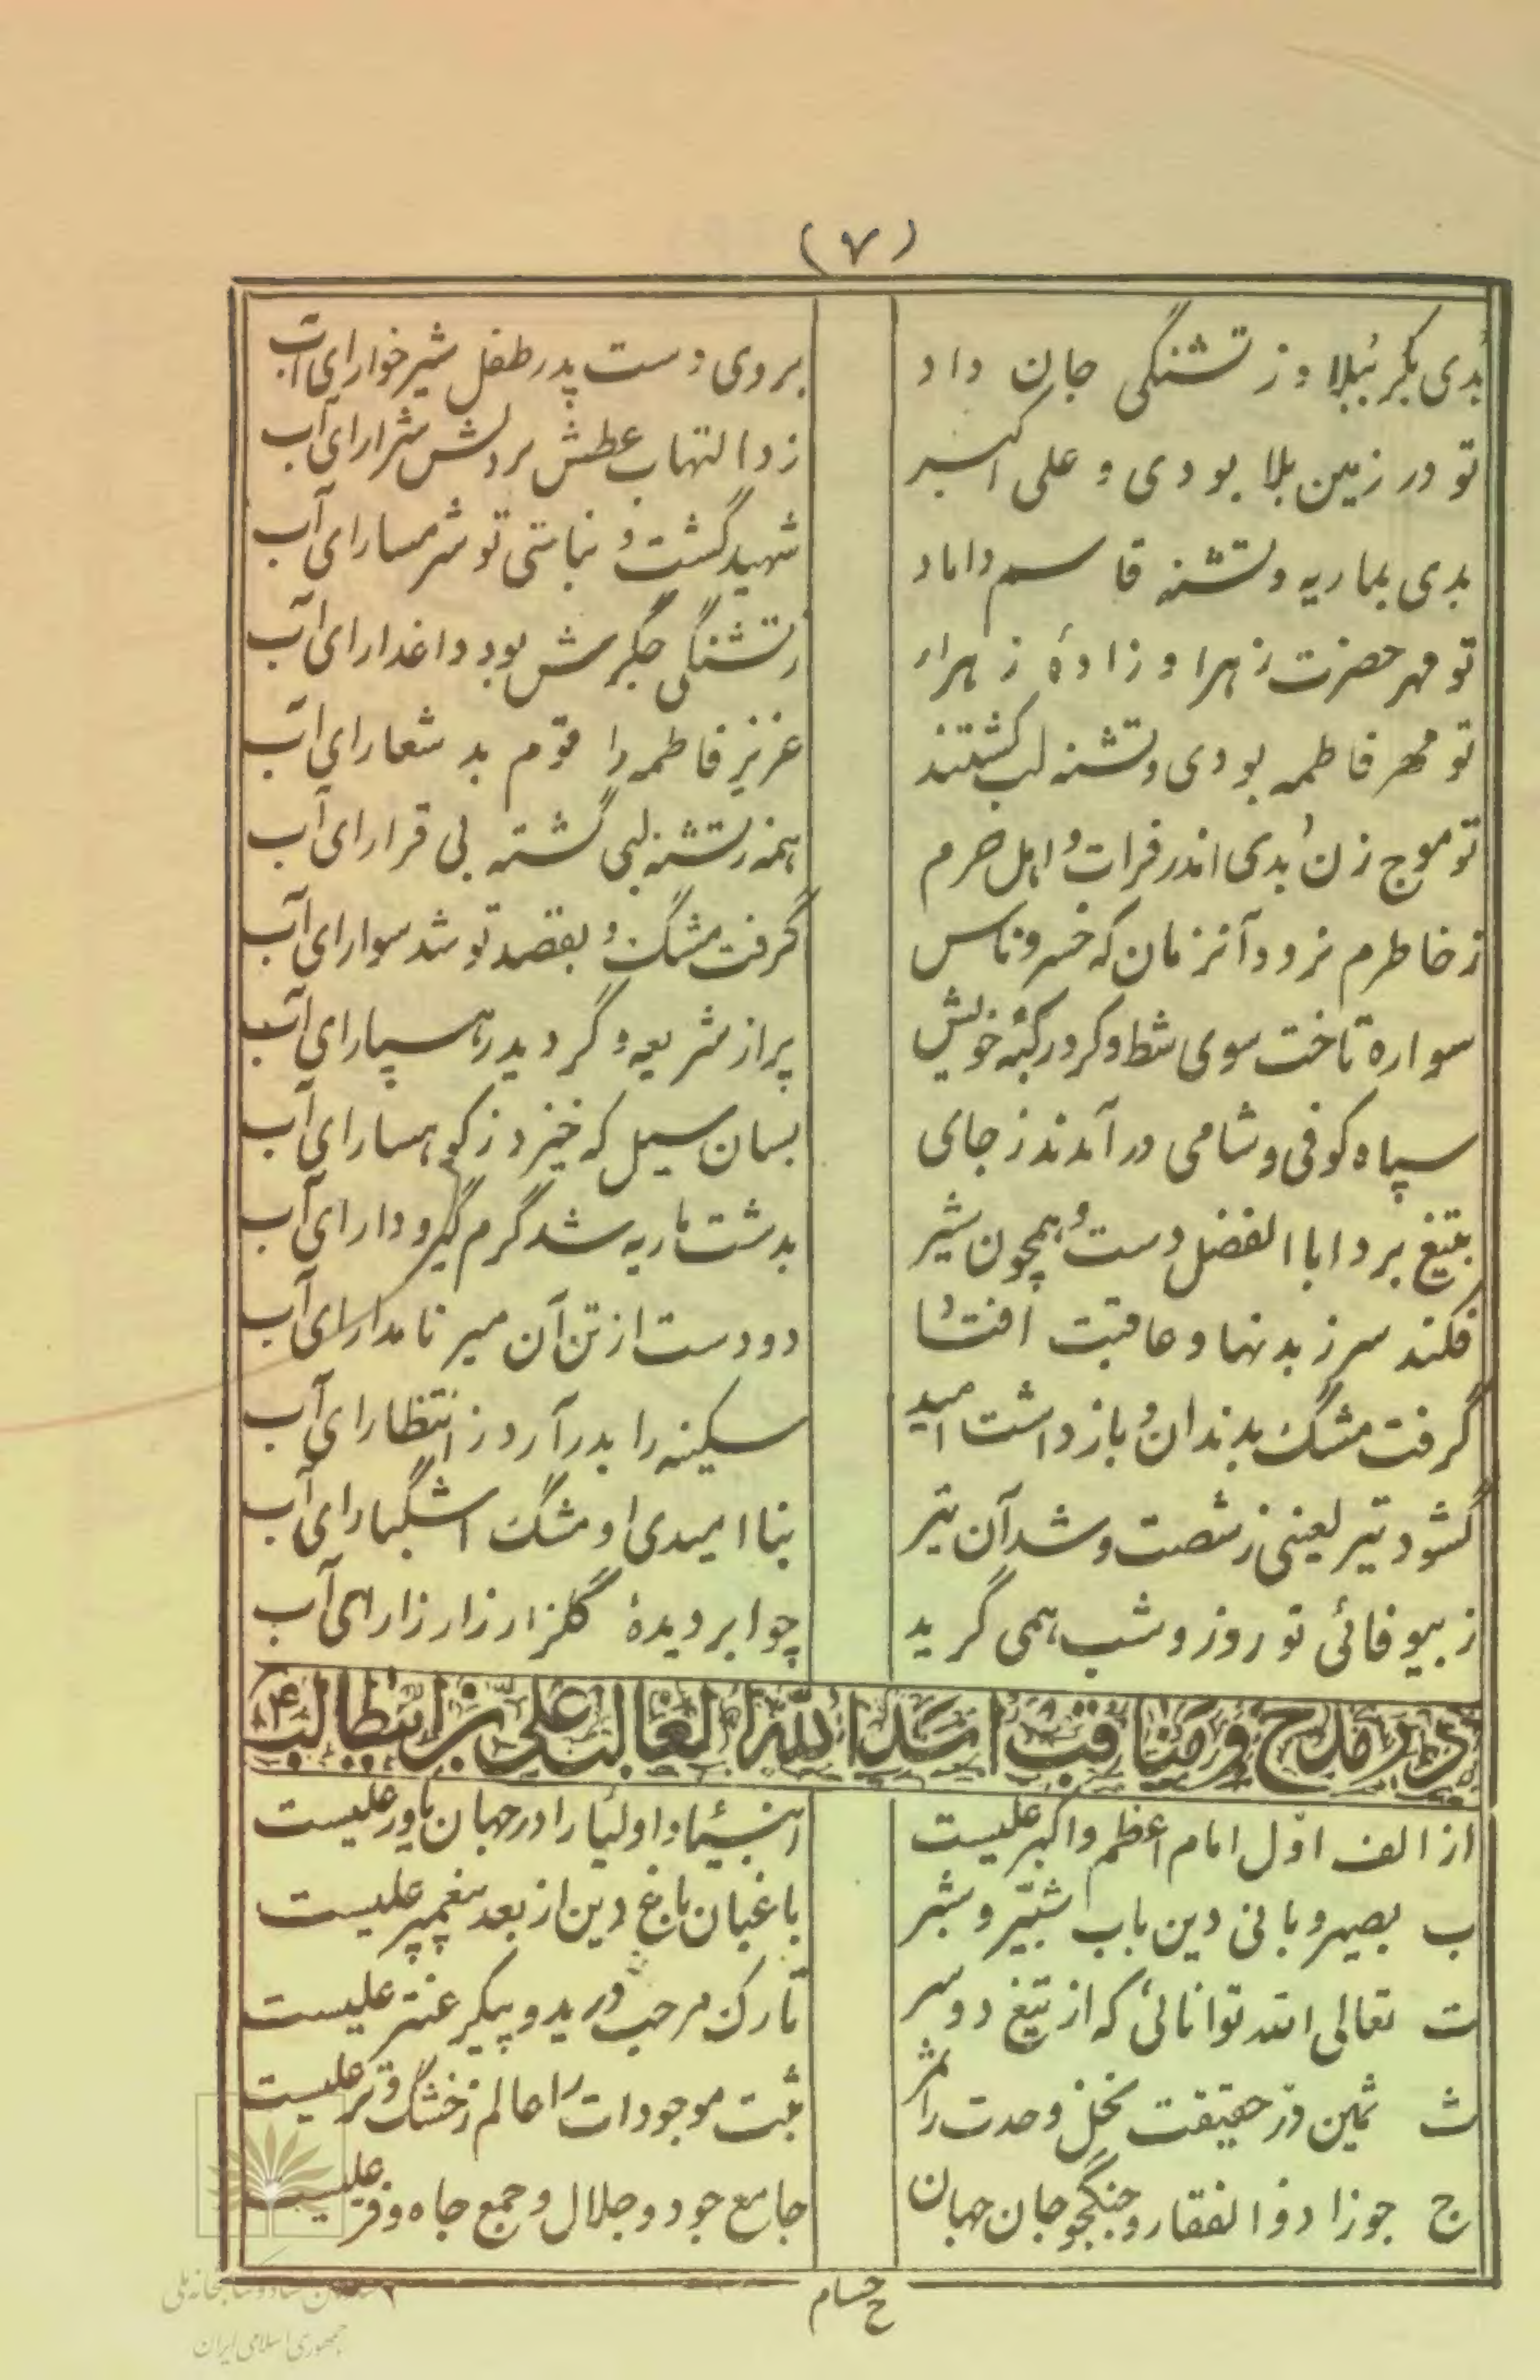 (۷)
بُدی بکربُبلا و ز تشنگی جان داد بروی دست پدر طفل شیرخوار ای آب
تو در زمین بلا بودی و علی اکبر زد التهاب عطش بر دلش شرار ای آب
بدی بماریه و تشنه قاسم داماد شهید گشت و نباشی تو شرمسار ای آب
تو مهر حضرت زهرا و زادهٔ زهراء ز تشنگی جگرش بود داغدار ای آب
تو مهر فاطمه بودی و تشنه لب کشتند عزیز فاطمه را قوم بد شعار ای آب
تو موج زن بُدی اندر فرات و اهل حرم همه ز تشنه لبی گشته بی قرار ای آب
ز خاطرم نرود آنزمان که خسرو ناس گرفت مشک و بقصد تو شد سوار ای آب
سواره تاخت سوی شط و کرد رکبهٔ خویش پر از شریعه و گردید رهسپار ای آب
سپاه کوفی و شامی در آمدند ز جای بسان سیل که خیزد ز کوهسار ای آب
بتیغ برد ابا الفضل دست و همچون شیر بدشت ماریه شد گرم گیر و دار ای آب
فکند سر ز بدنها و عاقبت افتاد دو دست از تن آن میر نامدار ای آب
گرفت مشک بدندان و باز داشت امید سکینه را بدر آرد ز انتظار ای آب
گشود تیر لعینی ز شصت و شد آن تیر بنا امیدی او مشک اشگبار ای آب
ز بیوفائی تو روز و شب همی گرید چو ابر دیدهٔ گلزار زار زار ای آب
در مدح و مناقب اسد الله الغالب علی بن ابیطالب ع
از الف اوّل امام اعظم و اکبر علیست انبیا و اولیا را در جهان یاور علیست
ب بصیر و بانی دین باب شبّیر و شبر باغبان باغ دین از بعد پیغمبر علیست
ت تعالی الله توانائی که از تیغ دو سر تارک مرحب درید و پیکر عنتر علیست
ث ثمین در حقیقت نخل وحدت را ثمر ثبت موجودات را عالم ز خشک و تر علیست
ج جوزا ذوالفقار و جنگجو جان جهان جامع جود و جلال و جمع جاه و فر علیست
ح حسام
جمهوری اسلامی ایران